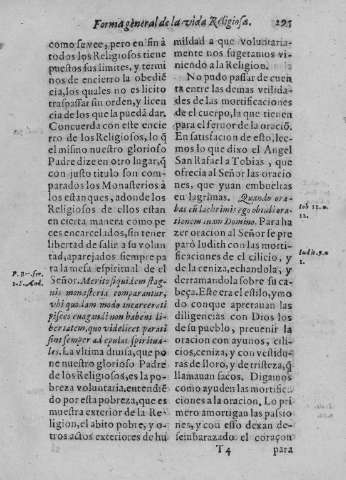 Forma general de la vida Religiosa. 295
como se vee, pero en fin à
todos los Religiosos tiene
puestos sus limites, y termi
nos de encierro la obediē
cia, los quales no es licito
traspassar sin orden, y licen
cia de los que la pueden dar.
Concuerda con este encie
rro de los Religiosos, lo q̄
el mismo nuestro glorioso
Padre dize en otro lugar, q̄
con justo titulo son com-
parados los Monasterios à
los estanques, adonde los
Religiosos de ellos estan
en cierta manera como pe
ces encarcelados, sin tener
libertad de salir a su volun
tad, aparejados siempre pa
ra la mesa espiritual de el
Señor. Merito siquidem stag-
nis monasteria comparantur,
vbi quodam modo incarcerati
pisces euagandi non habens li-
bertatem, quo videlicet parati
sint semper ad epulas spiritua-
les. La vltima diuisa, que po
ne nuestro glorioso Padre
de los Religiosos, es la po-
breza voluntaria, entendiē
do por esta pobreza, que es
muestra exterior de la Re-
ligion, el abito pobre, y o-
tros actos exteriores de hu
mildad a que voluntaria-
mente nos sugetamos vi-
niendo a la Religion.
No pudo passar de cuen
ta entre las demas vtilida-
des de las mortificaciones
de el cuerpo, la que tienen
para el feruor de la oraciō.
En satisfacion de esto, lee-
mos lo que dixo el Angel
San Rafael a Tobias, que
ofrecia al Señor las oracio
nes, que yuan embueltas
en lagrimas. Quando ora-
bas cū lachrimis ego obtuli ora-
tionem tuam Domino. Para ha
zer oracion al Señor se pre
parò Iudith con las morti-
ficaciones de el cilicio, y
de la ceniza, echandola, y
derramandola sobre su ca-
beça. Este era el estilo, y mo
do conque apretauan las
diligencias con Dios los
de su pueblo, preuenir la
oracion con ayunos, cili-
cios, ceniza, y con vestidu-
ras de lloro, y de tristeza, q̄
llamauan sacos. Digamos
como ayuden las mortifica-
ciones a la oracion. Lo pri
mero amortigan las passio
nes, y con esto dexan de-
sembarazado el coraçon
Tob 12. n.
12.
Iudit. 9. n
1.
T 4 para